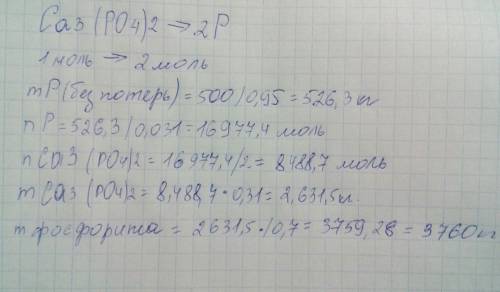 Ca3(PO4)2 → 2P
1 моль → 2 моль
mP(без потерь) = 500/0,95 = 526,3 кг
nP = 526,3/0,031 = 16977,4 моль
nCa3(PO4)2 = 16977,4/2 = 8488,7 моль
mCa3(PO4)2 = 8,488,7·0,31 = 2,631,5кг.
mфосфорита = 2631,5·/0,7 = 3759,28 = 3760кг